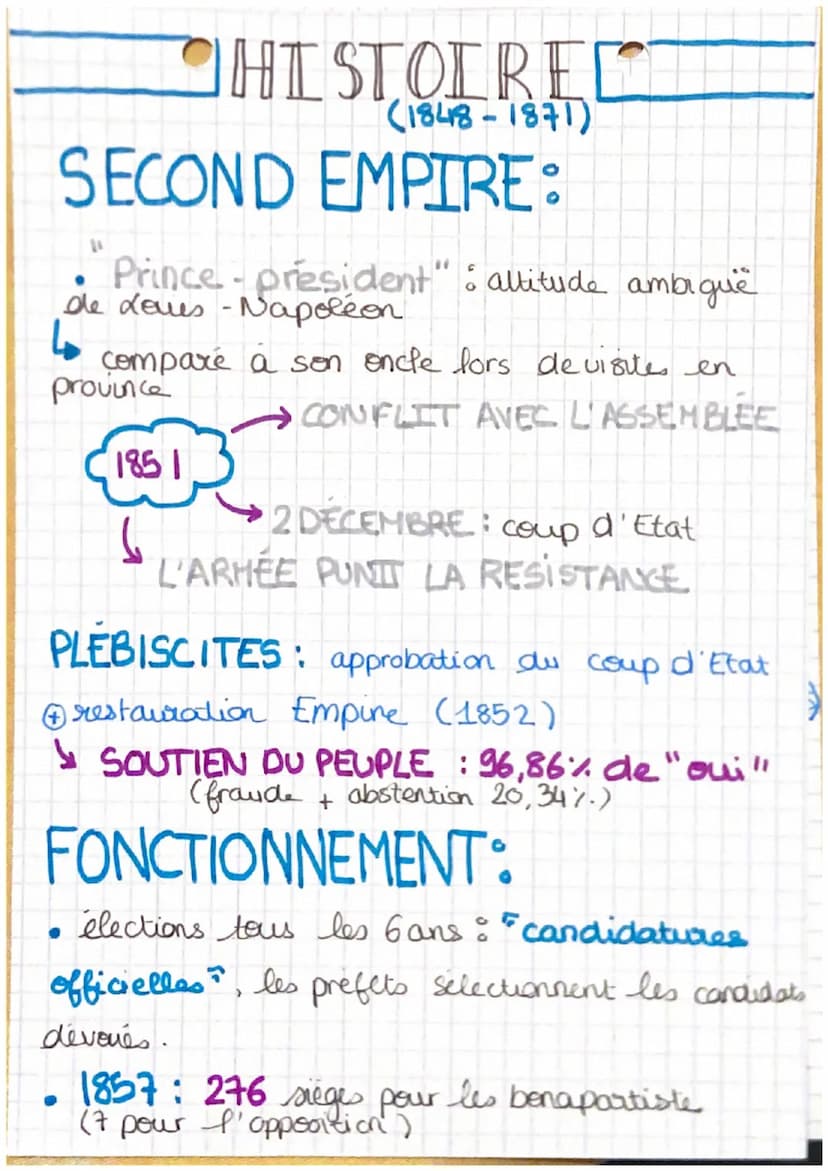 HISTOIRE
(1848-1871)
SECOND EMPIRE:
• "Prince-président" : attitude ambiguë
de Louis-Napoléon
↳ comparé à son oncle lors de visites en
province
→ CONFLIT AVEC L'ASSEMBLÉE
1851
→ 2 DÉCEMBRE : coup d'Etat
L'ARMÉE PUNIT LA RÉSISTANCE
PLÉBISCITES : approbation du coup d'Etat
⊕ restauration Empire (1852)
↘ SOUTIEN DU PEUPLE : 96,86% de "oui"
(fraude + abstention 20,34%.)
FONCTIONNEMENT:
• élections tous les 6 ans : "candidatures
officielles", les préfets sélectionnent les candidats
dévoués.
• 1857 : 276 sièges pour les bonapartiste
(7 pour l'opposition)